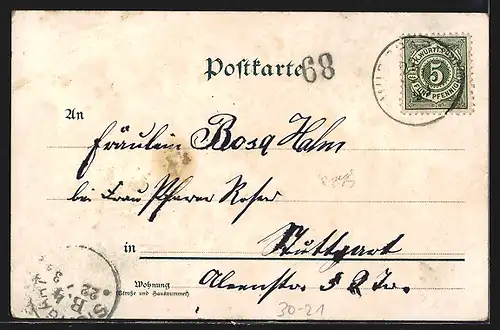 Postkarte
68
K. WÜRTTEMBERG
5
FÜNF PFENNIG
An
Fräulein Rosa Halm
bei Frau Pfarrer Roser
in Stuttgart
Wohnung
(Straße und Hausnummer)
2 Tr.
30-21